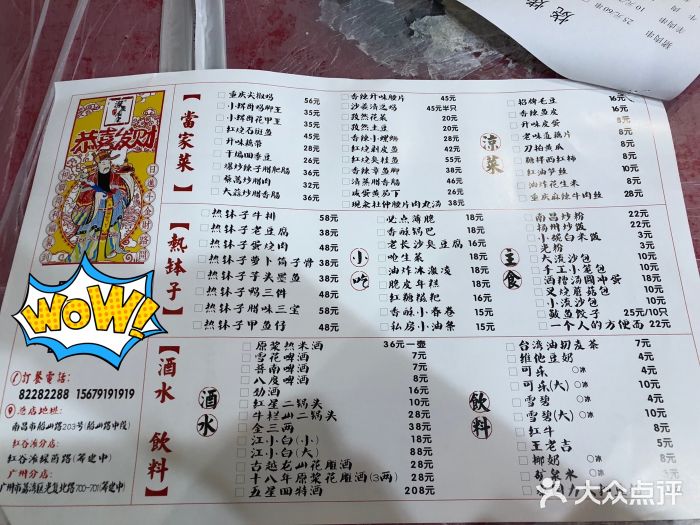 烧烤
猪肉串
25元/60串
牛肉串 10元
恭喜发财
WOW!
订餐电话:
82282288 15679191919
总店地址:
南昌市船山路203号(船山路中段)
红谷滩分店:
红谷滩绿茵路(筹建中)
广州分店:
广州市荔湾区光复北路700-701(筹建中)
【當家菜】
重庆尖椒鸡 56元
小虾焖鸡脚王 35元
小虾焖花甲王 35元
红烧石斑鱼 45元
升味藕带 28元
干煸四季豆 26元
爆炒辣子腊肥肠 36元
藜蒿炒腊肉 32元
大蒜炒腊香肠 36元
香辣升味腰片 45元
沙姜清远鸡 45元半只
孜然花菜 20元
孜然土豆 20元
香辣小螺蛳 28元
红烧剥皮鱼 45元
红烧臭桂鱼 55元
香辣章鱼脚 38元
清蒸腊香肠 46元
咸蛋黄茄丁 26元
现煮杜仲腰片肉丸汤 38元
涼菜
招牌毛豆 16元
香辣鱼皮 16元
升味皮蛋 8元
老味道藕片 8元
刀拍黄瓜 8元
糖拌西红柿 8元
红油笋丝 8元
油炸花生米 8元
重庆麻辣牛肉丝 28元
【熱钵子】
热钵子牛排 58元
热钵子老豆腐 38元
热钵子蛋烧肉 38元
热钵子萝卜筒子骨 38元
热钵子芋头墨鱼 38元
热钵子鸭三件 48元
热钵子腊味三宝 58元
热钵子甲鱼仔 48元
小吃
必点薄脆 18元
香酥锅巴 18元
老长沙臭豆腐 16元
吮生菜 18元
油炸冰激凌 18元
脆皮年糕 18元
红糖糍粑 16元
香酥小春卷 15元
私房小油条 15元
主食
南昌炒粉 22元
扬州炒饭 22元
小碗白米饭 3元
光粉 3元
大流沙包 10元
手工小笼包 10元
酒糟汤圆冲蛋 18元
叉烧蘑菇包 10元
小流沙包 10元
鲅鱼饺子 25元/10只
一个人的方便面 22元
【酒水 飲料】
酒水
原浆热米酒 36元一壶
雪花啤酒 7元
普南啤酒 7元
八度啤酒 7元
劲酒 18元
红星二锅头 18元
牛栏山二锅头 28元
金三两 38元
江小白(小) 18元
江小白(大) 88元
古越龙山花雕酒 28元
十八年原浆花雕酒(3两) 28元
五星四特酒 208元
飲料
台湾油切麦茶 7元
维他豆奶 4元
可乐 冰 4元
可乐(大) 冰 10元
雪碧 冰 4元
雪碧(大) 冰 10元
红牛 8元
王老吉 5元
椰奶 冰
矿泉水
大众点评